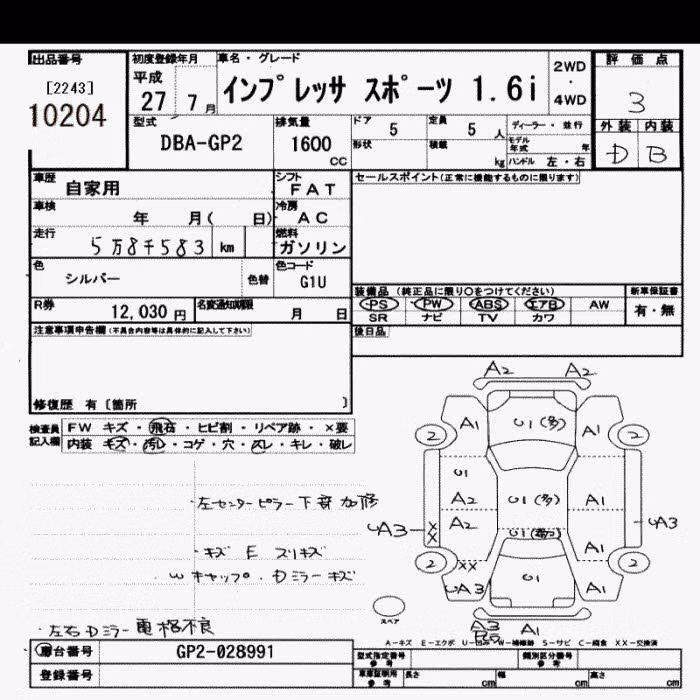 出品番号
[2243]
10204
初度登録年月
平成
27 7月
車名・グレード
インプレッサ スポーツ 1.6i
2WD
・
4WD
評価点
3
外装 内装
D B
型式
DBA-GP2
排気量
1600
CC
ドア
5
定員
5 人
形状
積載
kg
ディーラー・並行
モデル年式 年
ハンドル 左・右
車歴
自家用
シフト
FAT
車検
年 月( 日)
冷房
AC
走行
5万8千583 km
燃料
ガソリン
色
シルバー
色替
色コード
G1U
R券
12,030 円
名変通知期限
月 日
セールスポイント(正常に機能するものに限ります)
装備品(純正品に限り○をつけてください)
PS PW ABS エアB AW
SR ナビ TV カワ
新車保証書
有・無
注意事項申告欄(不具合内容等は具体的に記入して下さい)
後日品
修復歴 有〔箇所 〕
検査員
記入欄
FW キズ・飛石・ヒビ割・リペア跡・×要
内装 キズ・汚レ・コゲ・穴・スレ・キレ・破レ
A2 A2
A1 U1(多) A1
2 2
U1
A2 U1(多) A1
UA3 XX A2 A1 UA3
2 XX 2
UA3 U1 A1
左センターピラー下部加修
・キズ E スリキズ
W キャップ・Dミラーキズ
・左右Dミラー電格不良
スペア
A3 A1
A-キズ E-エクボ U-凹み W-補修跡 S-サビ C-腐食 XX-交換済
車台番号
GP2-028991
登録番号
型式指定番号
参考
類別区分番号
参考
車庫証明用
参考
長さ cm 幅 cm 高さ cm